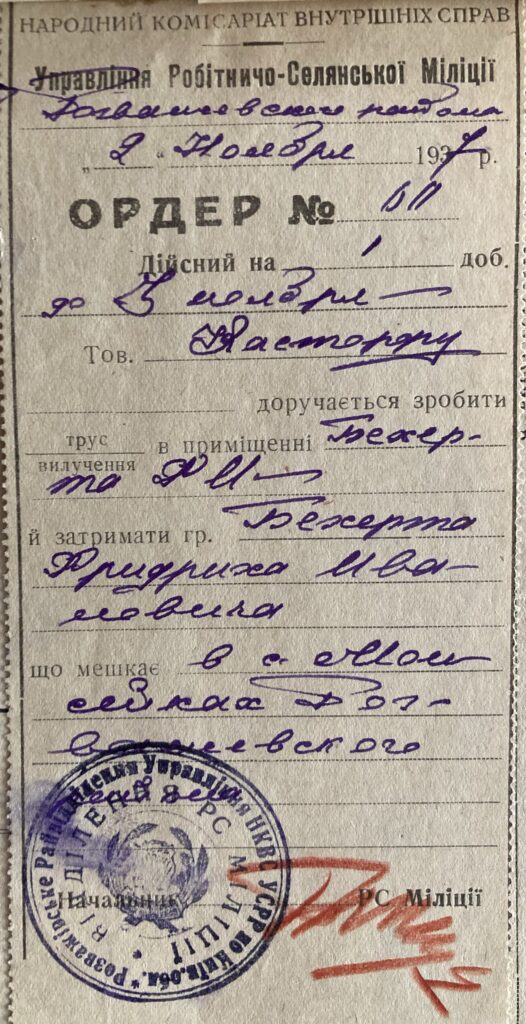 НАРОДНИЙ КОМІСАРІАТ ВНУТРІШНІХ СПРАВ
Управління Робітничо-Селянської Міліції
„2“ Ноября 1937 р.
ОРДЕР №
Дійсний на 1 доб.
до 3 ноября
Тов. Касторфу
доручається зробити
трус
вилучення
в приміщенні Бехер-
та Ф И
й затримати гр. Бехерта
Фридриха Ива-
новича
що мешкає в с. Мои
сейках Роз-
важевского
района
Начальник РС Міліції
Розважівське Райвідділення Управління НКВС УСРР по Київ. обл.
ВІДДІЛЕННЯ РС МІЛІЦІЇ